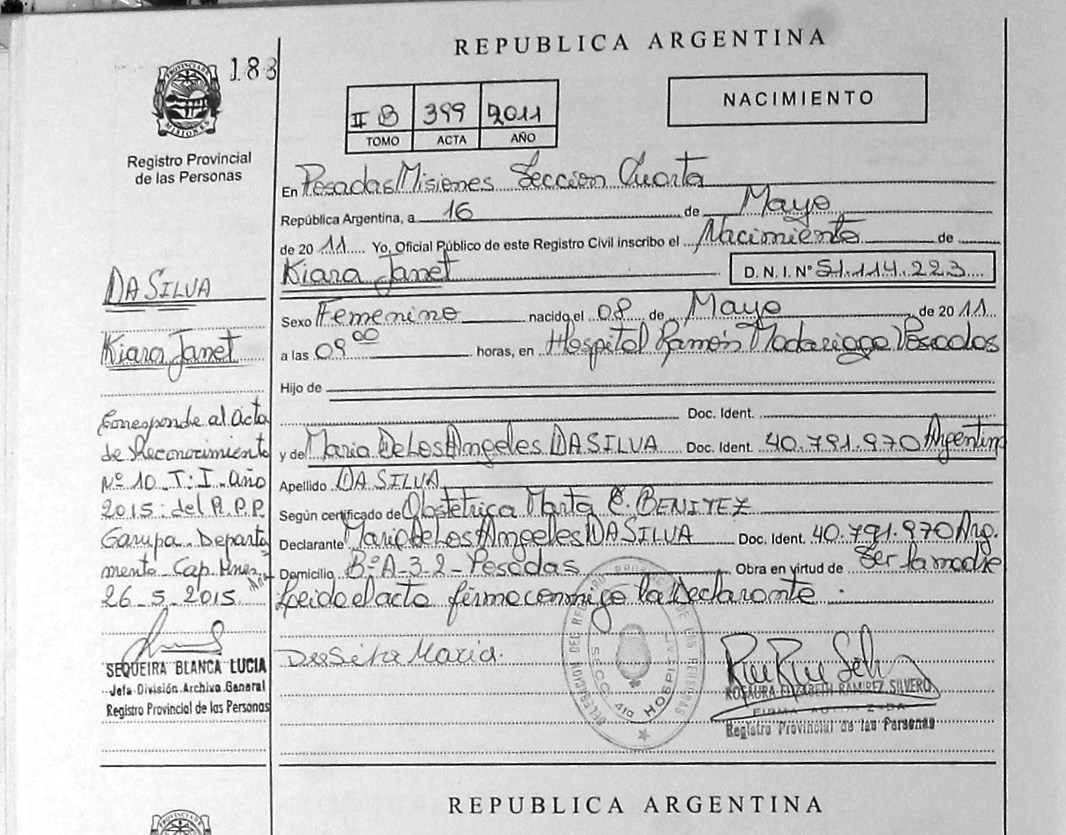 183
REPUBLICA ARGENTINA
PROVINCIA DE
MISIONES
Registro Provincial
de las Personas
II B 399 2011
TOMO ACTA AÑO
NACIMIENTO
En Posadas Misiones Seccion Cuarta
República Argentina, a 16 de Mayo
de 2011 Yo, Oficial Público de este Registro Civil inscribo el Nacimiento de
Kiara Janet D. N. I. Nº 51.114.223
Sexo Femenino nacido el 08 de Mayo de 2011
a las 09 00 horas, en Hospital Ramón Madariaga Posadas
Hijo de
Doc. Ident.
y de Maria De Los Angeles DA SILVA Doc. Ident. 40.791.970 Argentina
Apellido DA SILVA
Según certificado de Obstetrica Marta E. BENITEZ
Declarante Maria De Los Angeles DA SILVA Doc. Ident. 40.791.970 Arg.
Domicilio Bº A-3-2-Posadas Obra en virtud de Ser la madre
Leido el acta firma conmigo la Declarante.
Da Silva Maria.
DELEGACION DEL REGISTRO DE LAS PERSONAS
SECC. 4ta HOSPITAL
ROSAURA ELIZABETH RAMIREZ SILVERO
FIRMA AUTORIZADA
Registro Provincial de las Personas
DA SILVA
Kiara Janet
Corresponde al Acta
de Reconocimiento
Nº 10 T: I. Año
2015 del R.P.P.
Garupa Departa
mento Cap. Mnes.
26-5-2015.
SEQUEIRA BLANCA LUCIA
Jefa División Archivo General
Registro Provincial de las Personas
REPUBLICA ARGENTINA